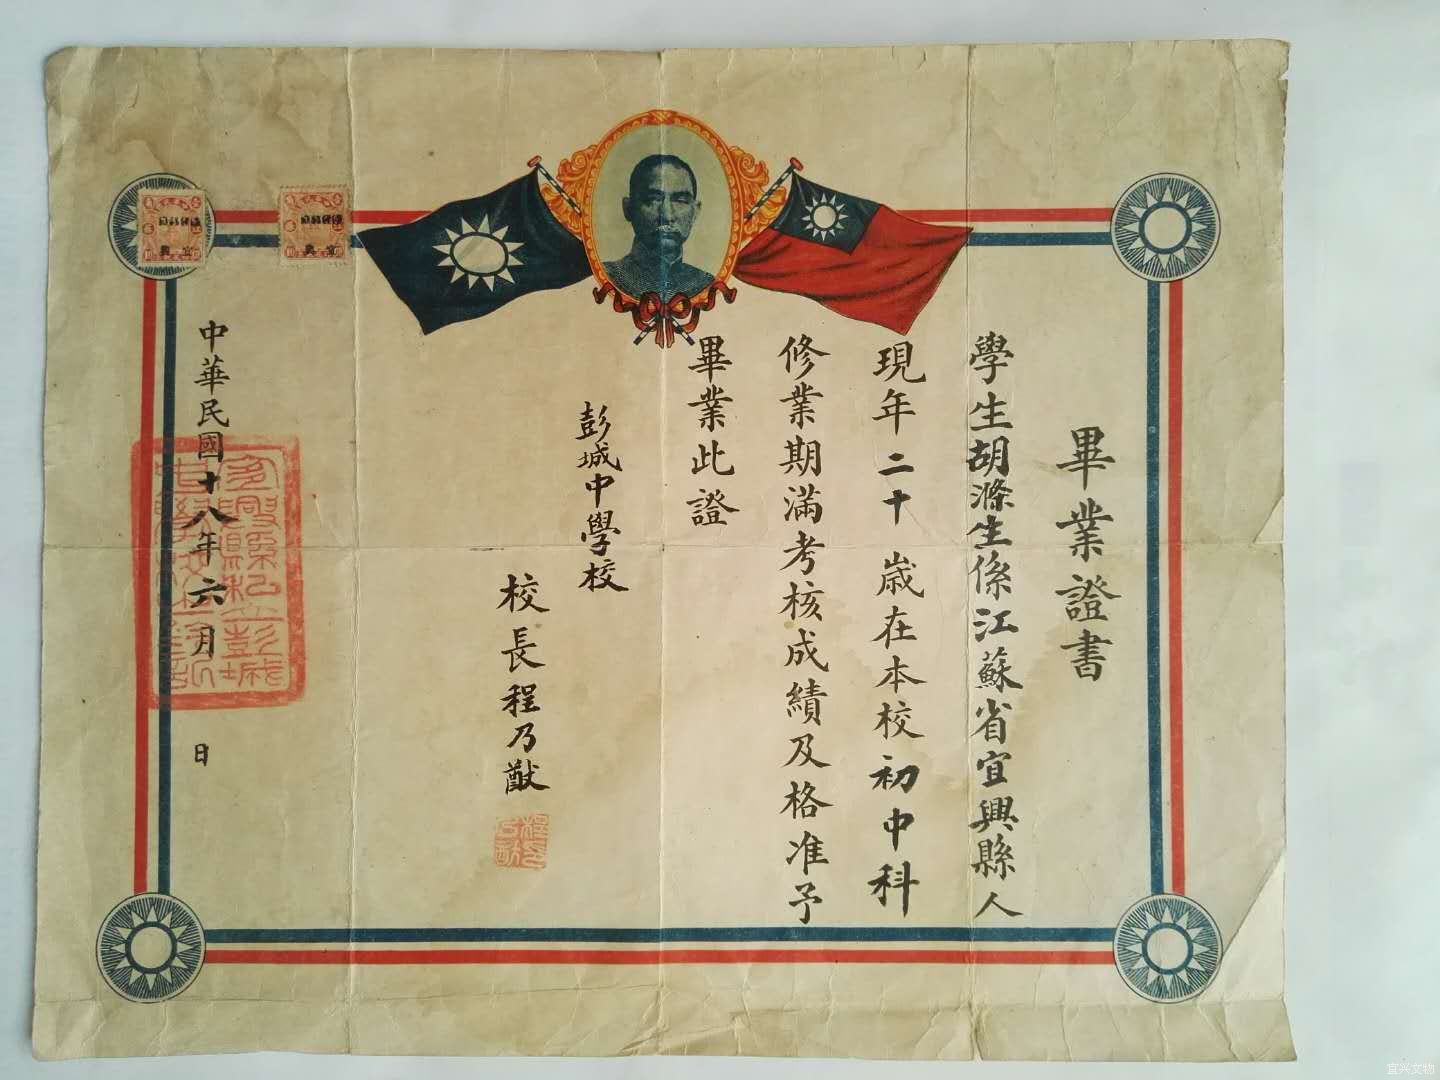 畢業證書
學生胡滌生係江蘇省宜興縣人
現年二十歲在本校初中科
修業期滿考核成績及格准予
畢業此證
彭城中學校
校長程乃猷
中華民國十八年六月 日
宜興
宜興
宜兴文物